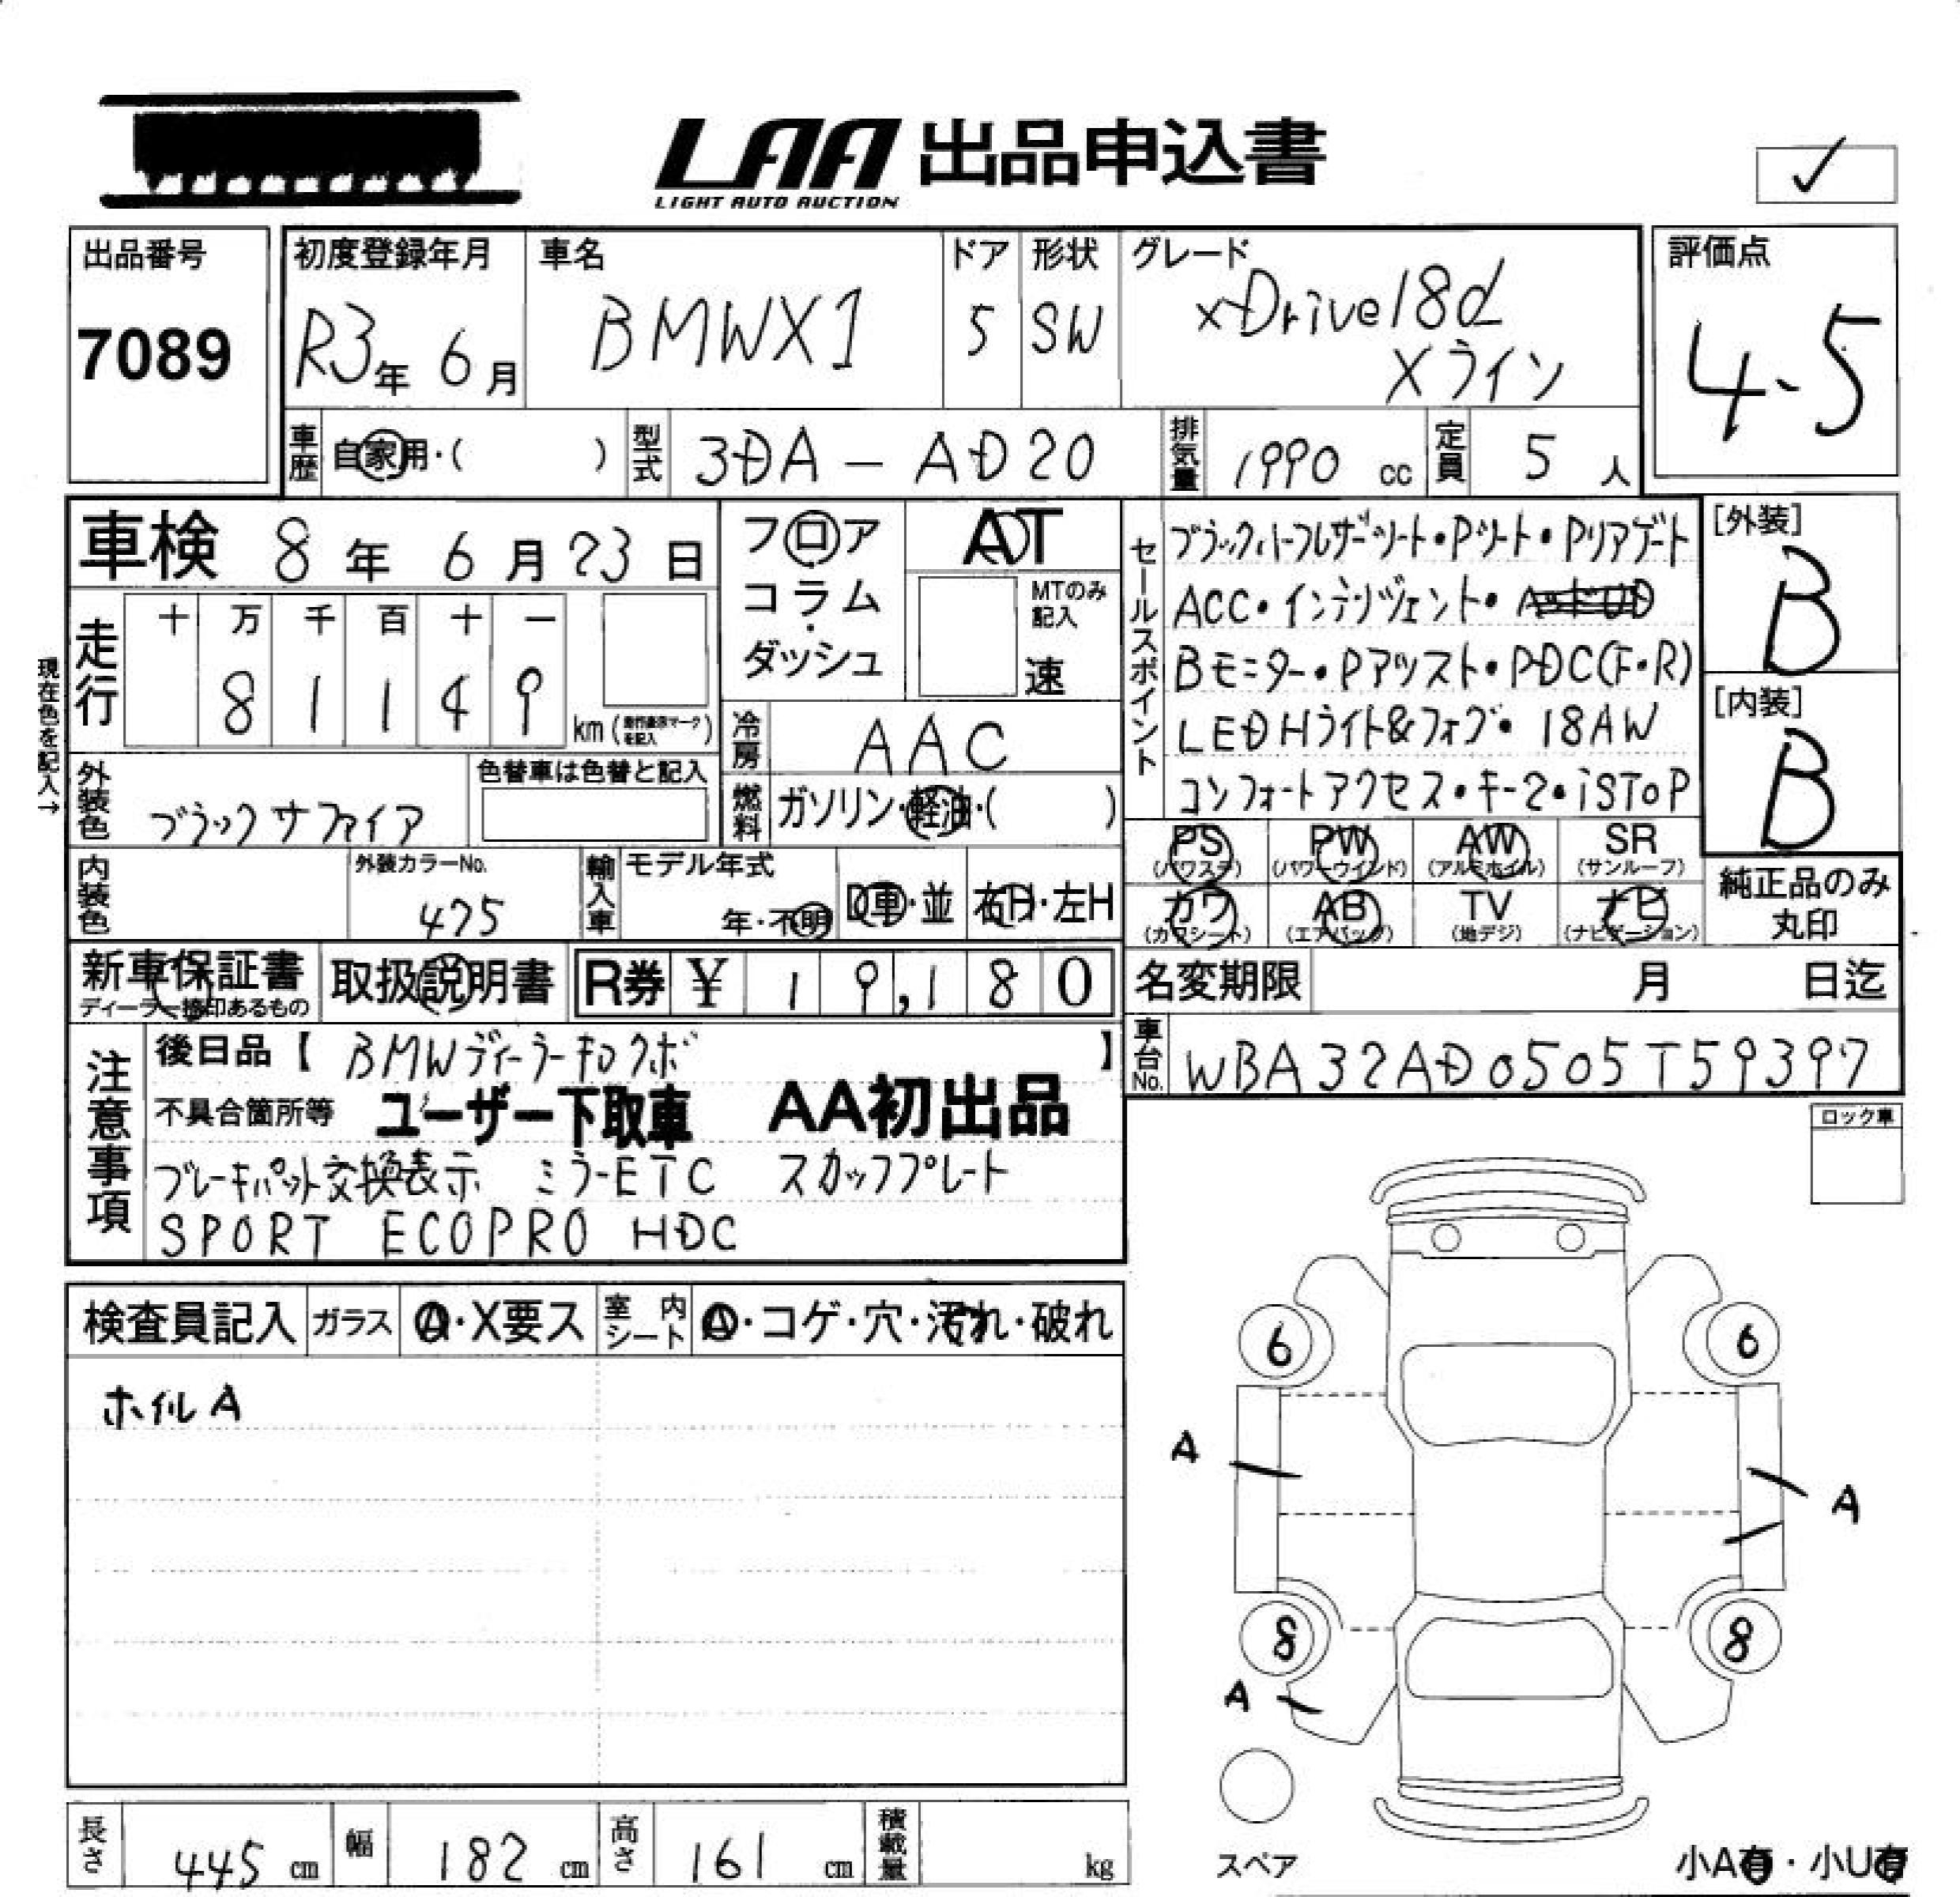 LAA 出品申込書
LIGHT AUTO AUCTION
出品番号
7089
初度登録年月
R3年 6月
車名
BMWX1
ドア
5
形状
SW
グレード
xDrive18d
Xライン
評価点
4.5
車歴
自家用・( )
型式
3DA-AD20
排気量
1990 cc
定員
5 人
車検 8年 6月 23日
走行
十 万 千 百 十 一
8 1 1 4 9
km (走行表示マークを記入)
現在色を記入→
フロア
コラム
・
ダッシュ
AT
MTのみ
記入
速
冷房
AAC
燃料
ガソリン・軽油・( )
外装色
ブラックサファイア
色替車は色替と記入
内装色
外装カラーNo.
475
輸入車
モデル年式
年・不明
D車・並
右H・左H
新車保証書
ディーラー捺印あるもの
取扱説明書
R券 ¥ 19,180
セールスポイント
ブラックハーフレザーシート・Pシート・Pリアゲート
ACC・インテリジェント・
Bモニター・Pアシスト・PDC(F・R)
LEDHライト&フォグ・18AW
コンフォートアクセス・キー2・iSToP
[外装]
B
[内装]
B
PS
(パワステ)
PW
(パワーウインド)
AW
(アルミホイル)
SR
(サンルーフ)
カワ
(カワシート)
AB
(エアバッグ)
TV
(地デジ)
ナビ
(ナビゲーション)
純正品のみ
丸印
名変期限 月 日迄
車台No.
WBA32AD0505T59397
注意事項
後日品【 BMWディーラーキロクボ 】
不具合箇所等 ユーザー下取車 AA初出品
ブレーキパット交換表示 ミラーETC スカッフプレート
SPORT ECOPRO HDC
ロック車
検査員記入
ガラス
A・X要ス
室内シート
A・コゲ・穴・汚れ・破れ
ホイルA
6
6
A
A
8
8
A
スペア
小A有・小U有
長さ
445 cm
幅
182 cm
高さ
161 cm
積載量
kg